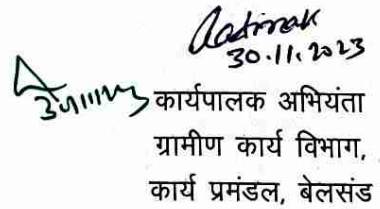 30.11.2023
कार्यपालक अभियंता
ग्रामीण कार्य विभाग,
कार्य प्रमंडल, बेलसंड